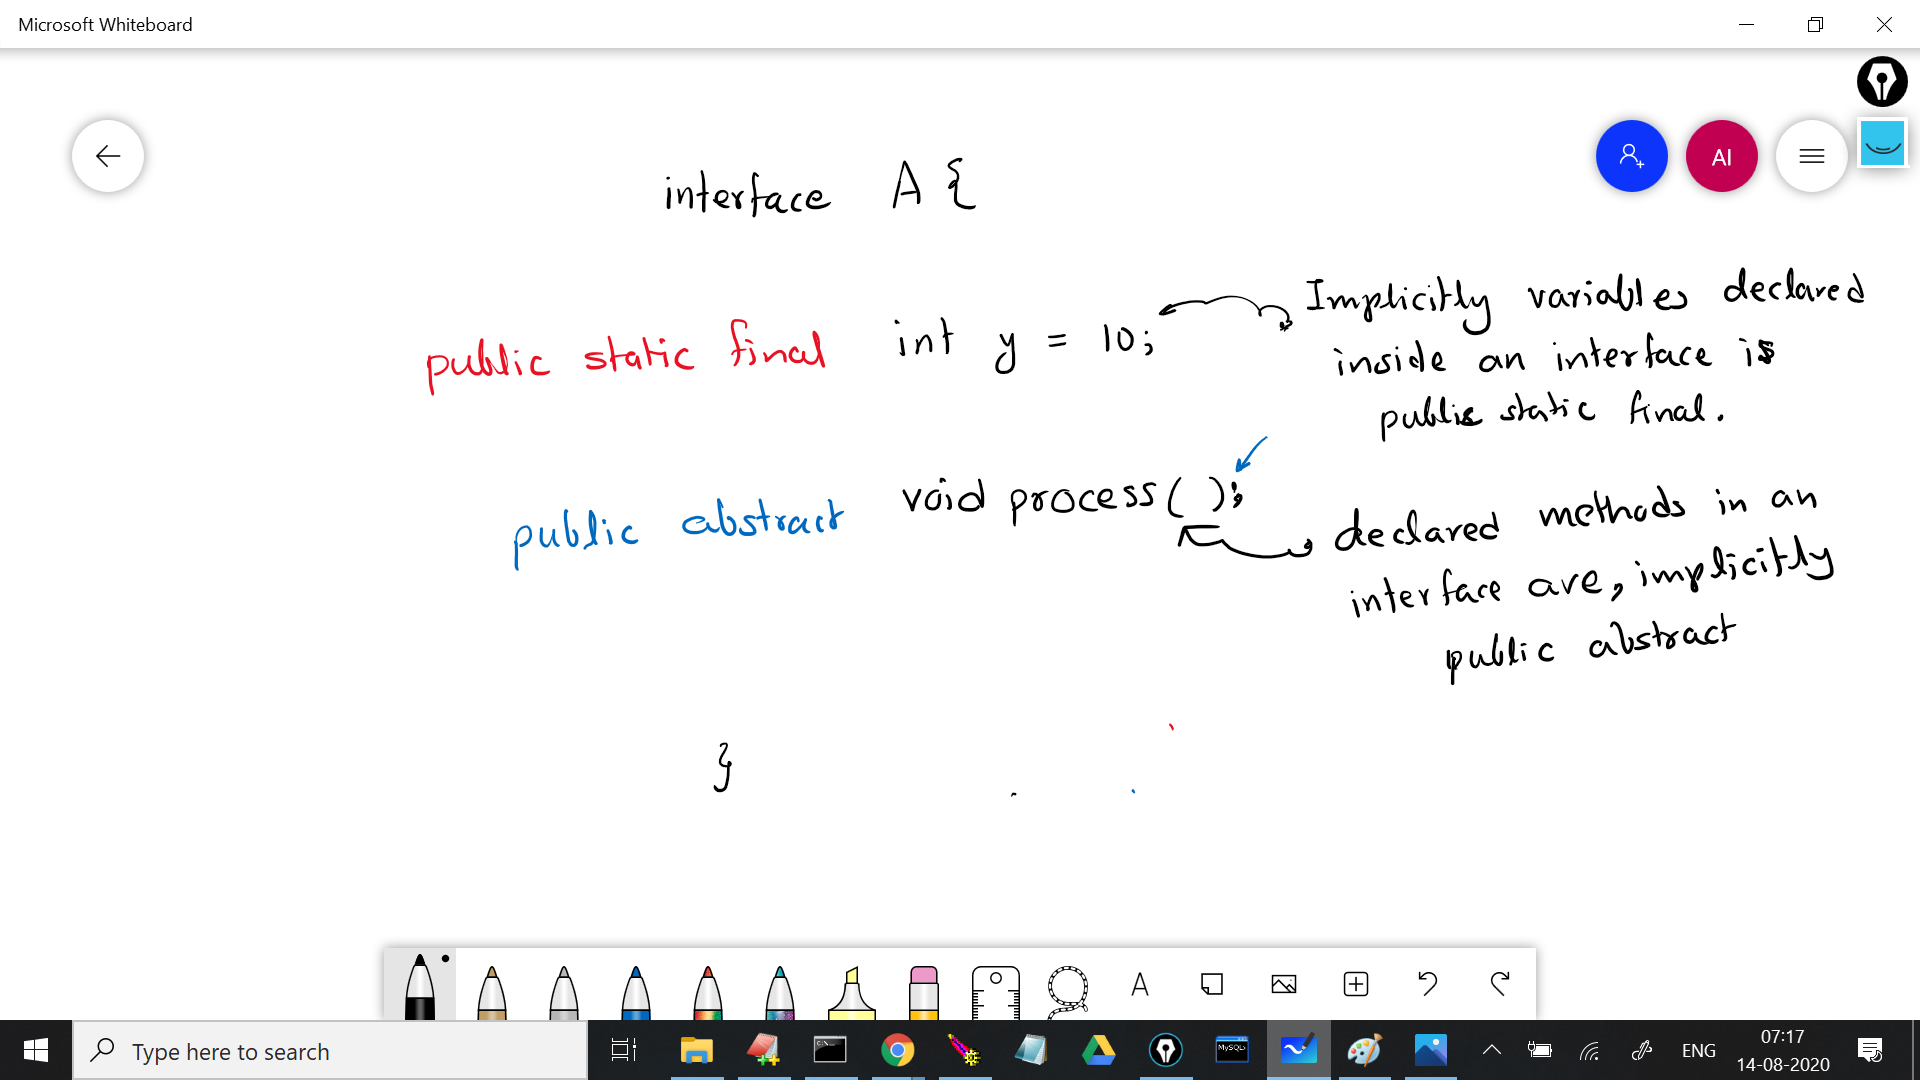 Microsoft Whiteboard
AI
interface A {
public static final int y = 10;
Implicitly variables declared
inside an interface is
public static final.
public abstract void process ( );
declared methods in an
interface are, implicitly
public abstract
}
A
Type here to search
C:\
MySQL
ENG
07:17
14-08-2020